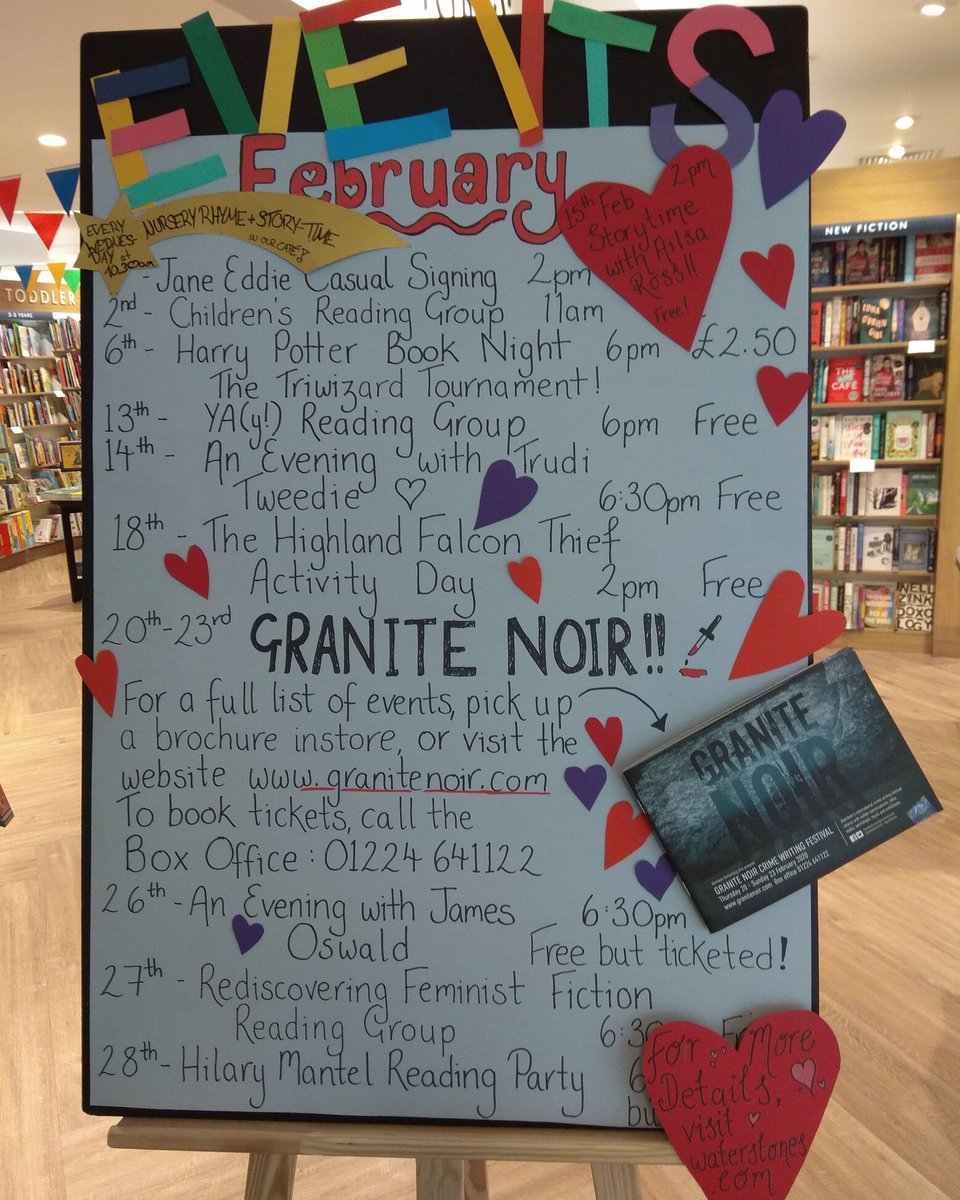 EVENTS
February
EVERY
WEDNES-
DAY at
10.30am
NURSERY RHYME + STORY-TIME
IN OUR CAFE!
15th Feb 2pm
Storytime
with Ailsa
Ross!!
Free!
- Jane Eddie Casual Signing 2pm
2nd - Children's Reading Group 11am
6th - Harry Potter Book Night 6pm £2.50
The Triwizard Tournament!
13th - YA(y!) Reading Group 6pm Free
14th - An Evening with Trudi
Tweedie ♡ 6:30pm Free
18th - The Highland Falcon Thief
Activity Day 2pm Free
20th-23rd GRANITE NOIR!!
For a full list of events, pick up
a brochure instore, or visit the
website www.granitenoir.com
To book tickets, call the
Box Office : 01224 641122
26th - An Evening with James 6:30pm
Oswald Free but ticketed!
27th - Rediscovering Feminist Fiction
Reading Group 6:30
28th - Hilary Mantel Reading Party 6
bu
For More
Details,
visit
waterstones
.com
GRANITE
NOIR
GRANITE NOIR CRIME WRITING FESTIVAL
Thursday 20 - Sunday 23 February 2020
www.granitenoir.com Box office 01224 641122
TODDLER
2-5 YEARS
NEW FICTION
EDNA
O'BRIEN
GIRL
THE
CAFÉ
NELL
ZINK
DOXO
LOGY